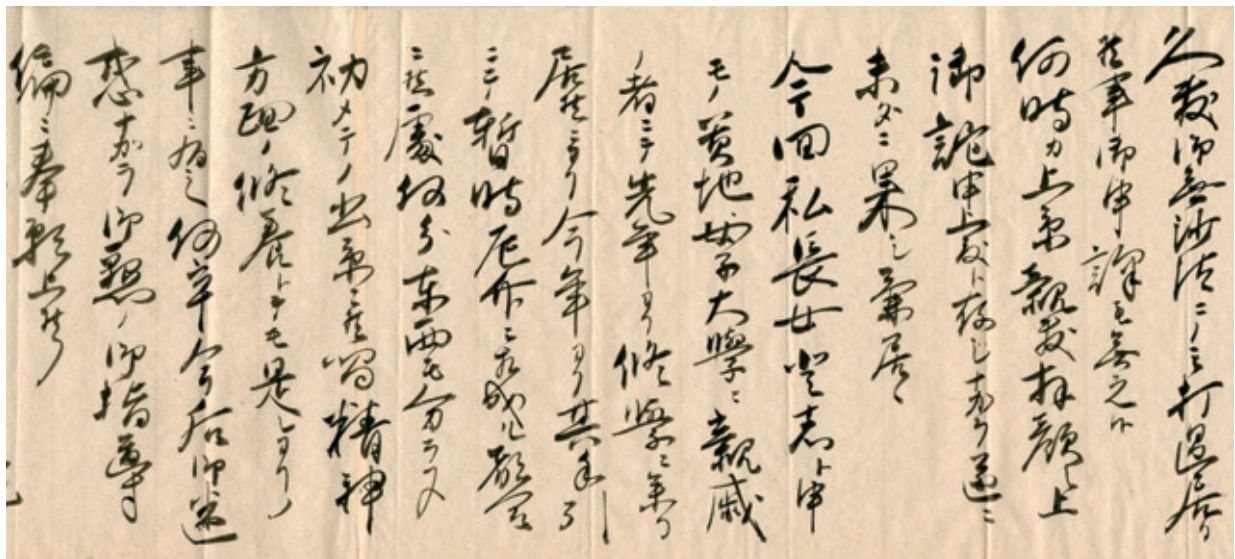 久敷御無沙汰ニノミ打過居リ
候事御申譯モ無之候
何時カ上京親敷拝顔ノ上
御詫申上度ト存シナカラ遂ニ
未タニ果シ兼居候
今回私長女 志ト申
モノ 地女子大學ニ親戚
ノ者ニテ先年ヨリ修學ニ参リ
居候ニヨリ今年ヨリ其手
ニテ暫時厄介ニ相成ル
候處何分東西モ分ラス
初メテノ出京ニ候間精神
方面ノ修養トテモ是レヨリノ
事ニ有之何卒今后御迷
惑ナカラ御懇ノ御指導
偏ニ奉願上候